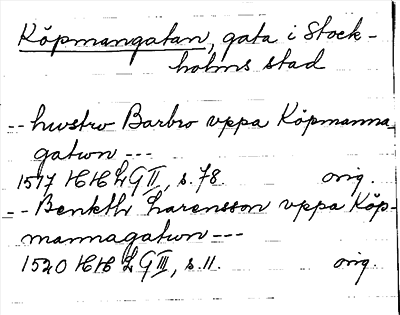 Köpmangatan, gata i Stock-
holms stad
-- hustrv Barbro vppa Köpmanna-
gatwn ---
1517 HH LG II, s. 78. orig.
-- Benkth Larensson vppa Köp-
mannagatwn ---
1520 HH LG III, s. 11. orig.